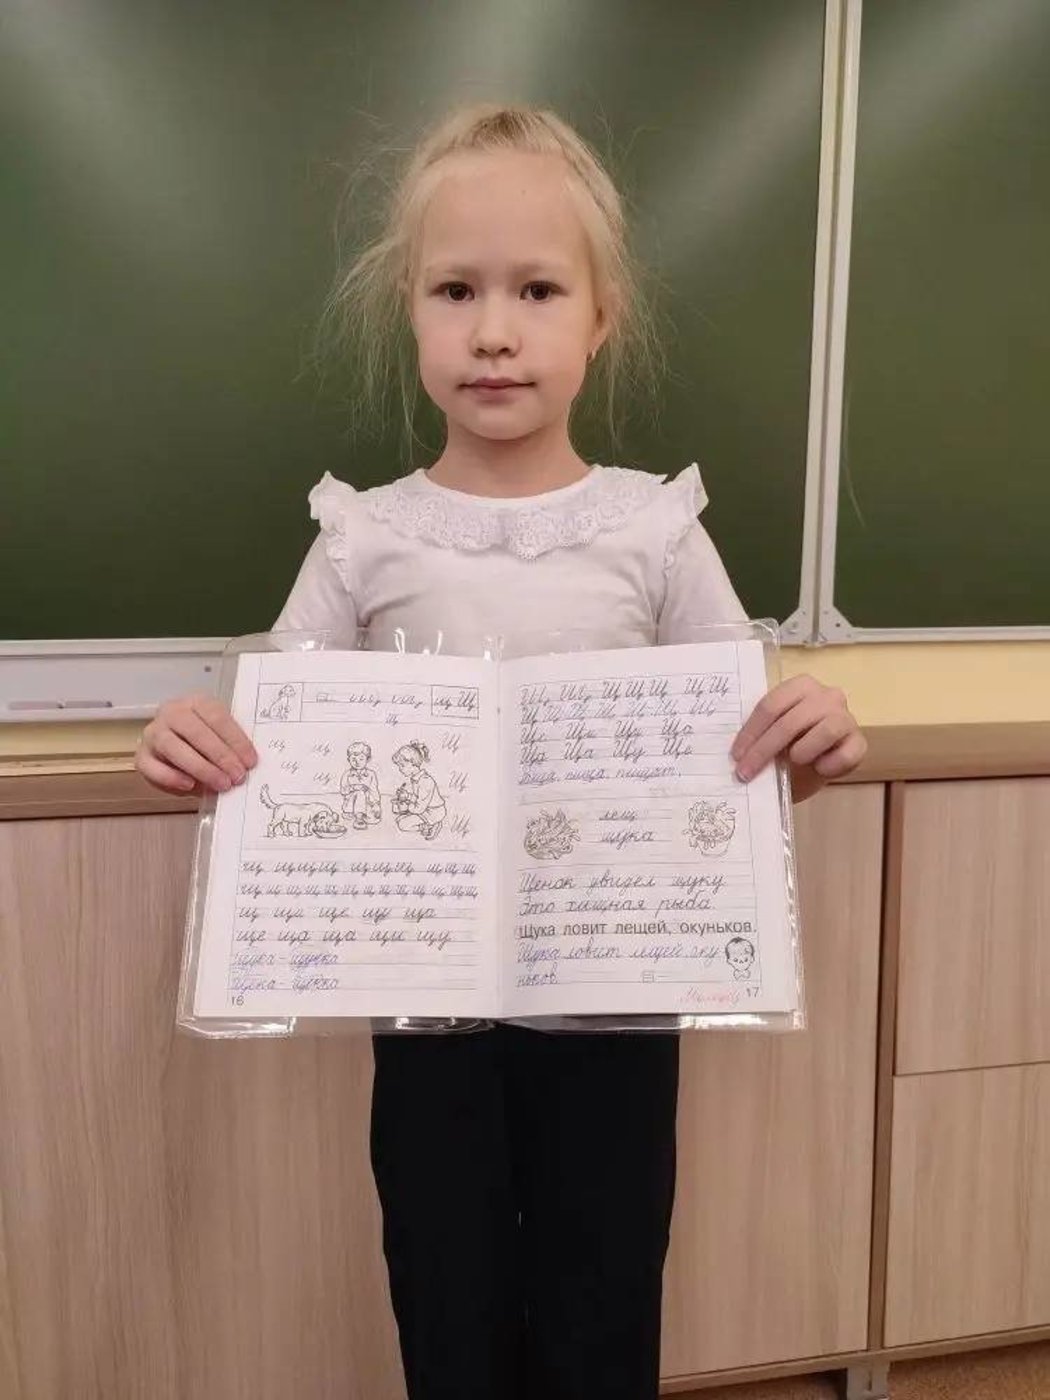 щ Щ
щ
щ щ Щ
щ
щ Щ
Щ
щ щ щ щ щ щ щ щ щ щ
щ щ щ щ щ щ щ щ щ щ щ щ
щ щи ще щу ща
ще ща ща щи щу
щука - щучка
щека - щёчка
16
Щ Щ Щ Щ Щ Щ Щ
Щ Щ Щ Щ Щ Щ Щ
Ще Щи Щу Ща
Ща Ща Щу Ще
пища, пищат.
лещ
щука
Щенок увидел щуку
Это хищная рыба
Щука ловит лещей, окуньков.
Щука ловит лещей, оку
ньков.
Молодец
17